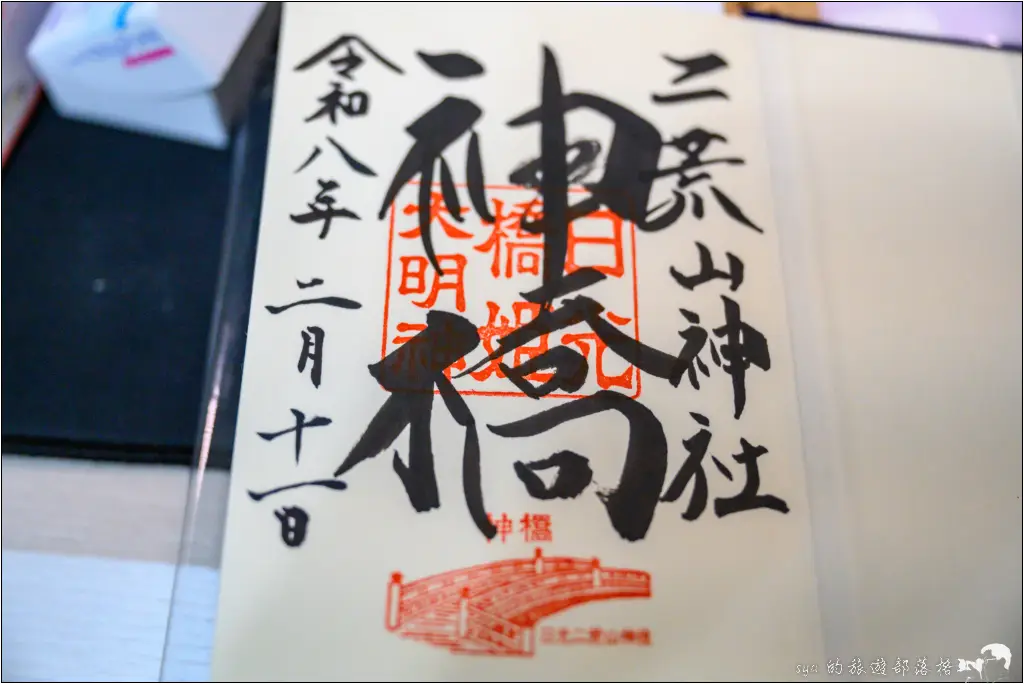 二荒山神社
神橋
日光
橋姫
大明神
令和八年 二月 十一日
神橋
日光二荒山神社
sya 的旅遊部落格